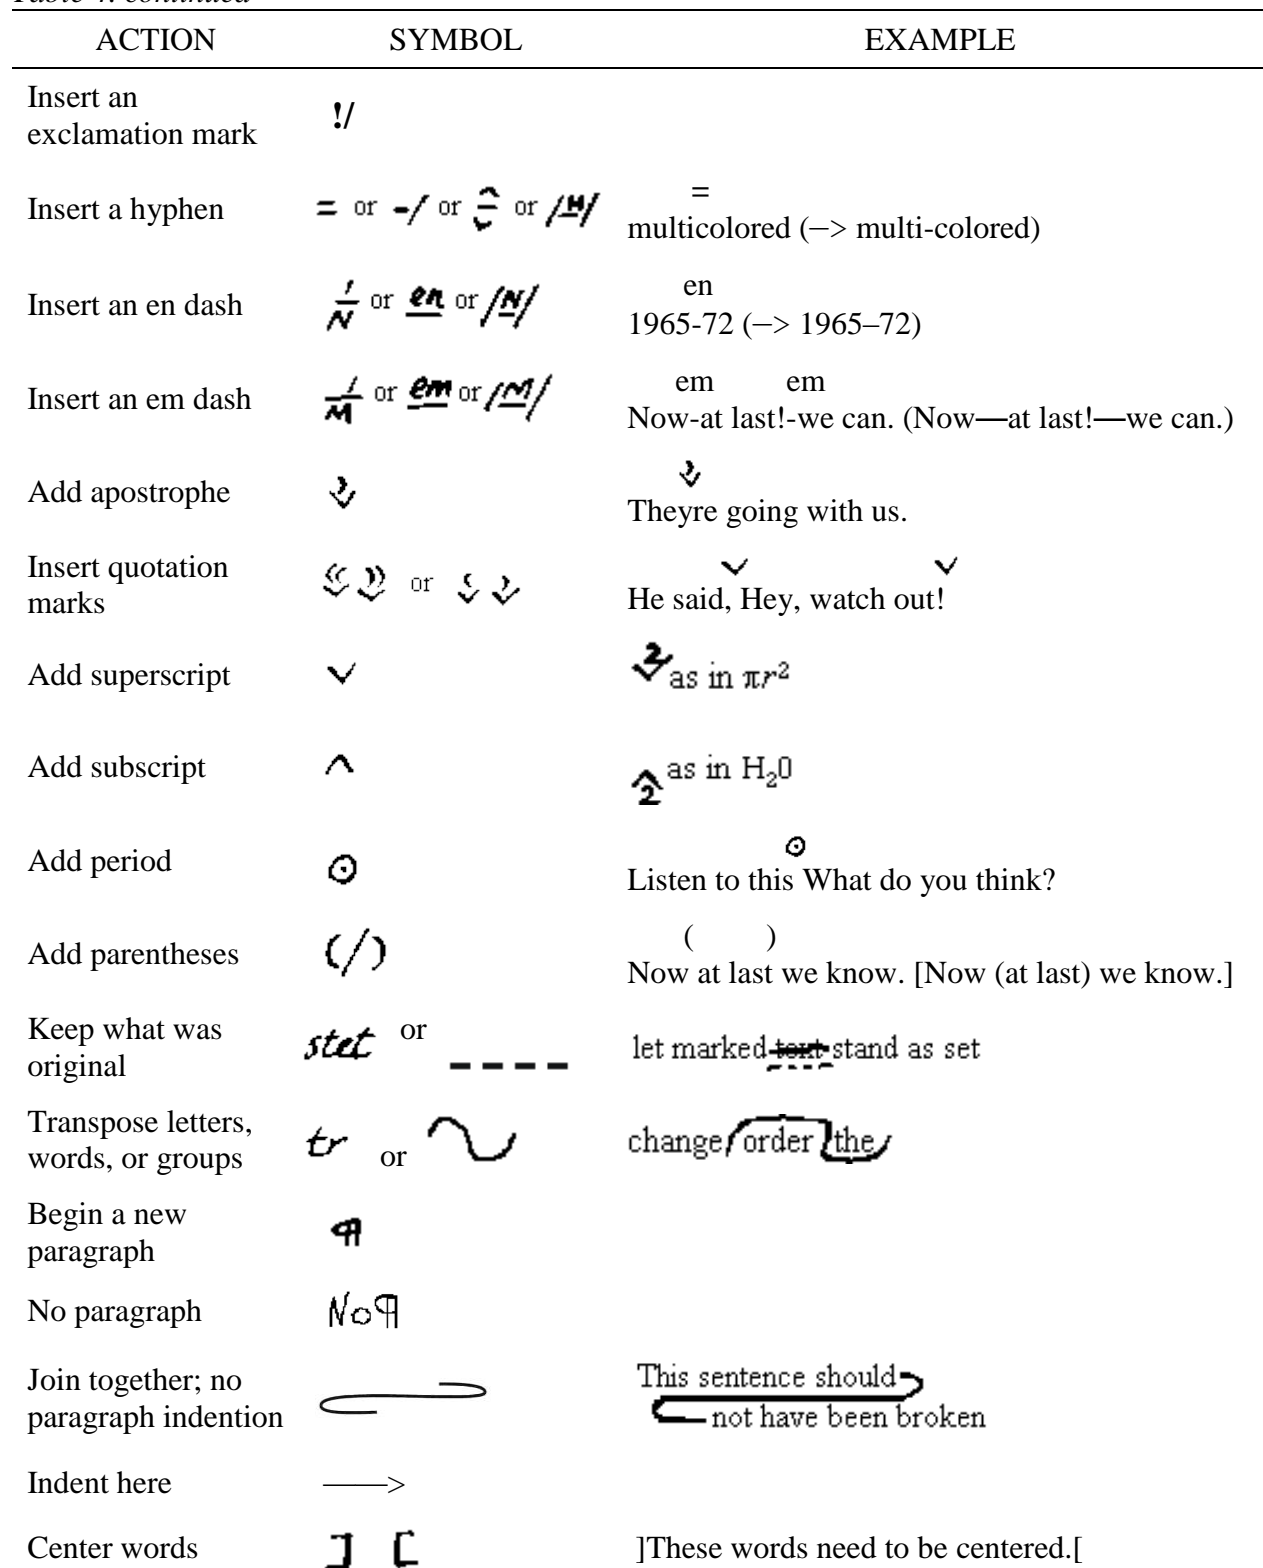 Table 4. continued
ACTION SYMBOL EXAMPLE
Insert an
exclamation mark !/
=
Insert a hyphen = or -/ or = or /H/ multicolored (—> multi-colored)
en
Insert an en dash 1/N or en or /N/ 1965-72 (—> 1965–72)
em em
Insert an em dash 1/M or em or /M/ Now-at last!-we can. (Now—at last!—we can.)
Add apostrophe Theyre going with us.
Insert quotation
marks “ ” or ‘ ’ He said, Hey, watch out!
Add superscript 2 as in πr²
Add subscript 2 as in H₂0
Add period Listen to this What do you think?
( )
Add parentheses (/) Now at last we know. [Now (at last) we know.]
Keep what was
original stet or – – – – let marked text stand as set
Transpose letters,
words, or groups tr or change order the
Begin a new
paragraph ¶
No paragraph No¶
This sentence should
Join together; no
paragraph indention not have been broken
Indent here ——>
Center words ] [ ]These words need to be centered.[